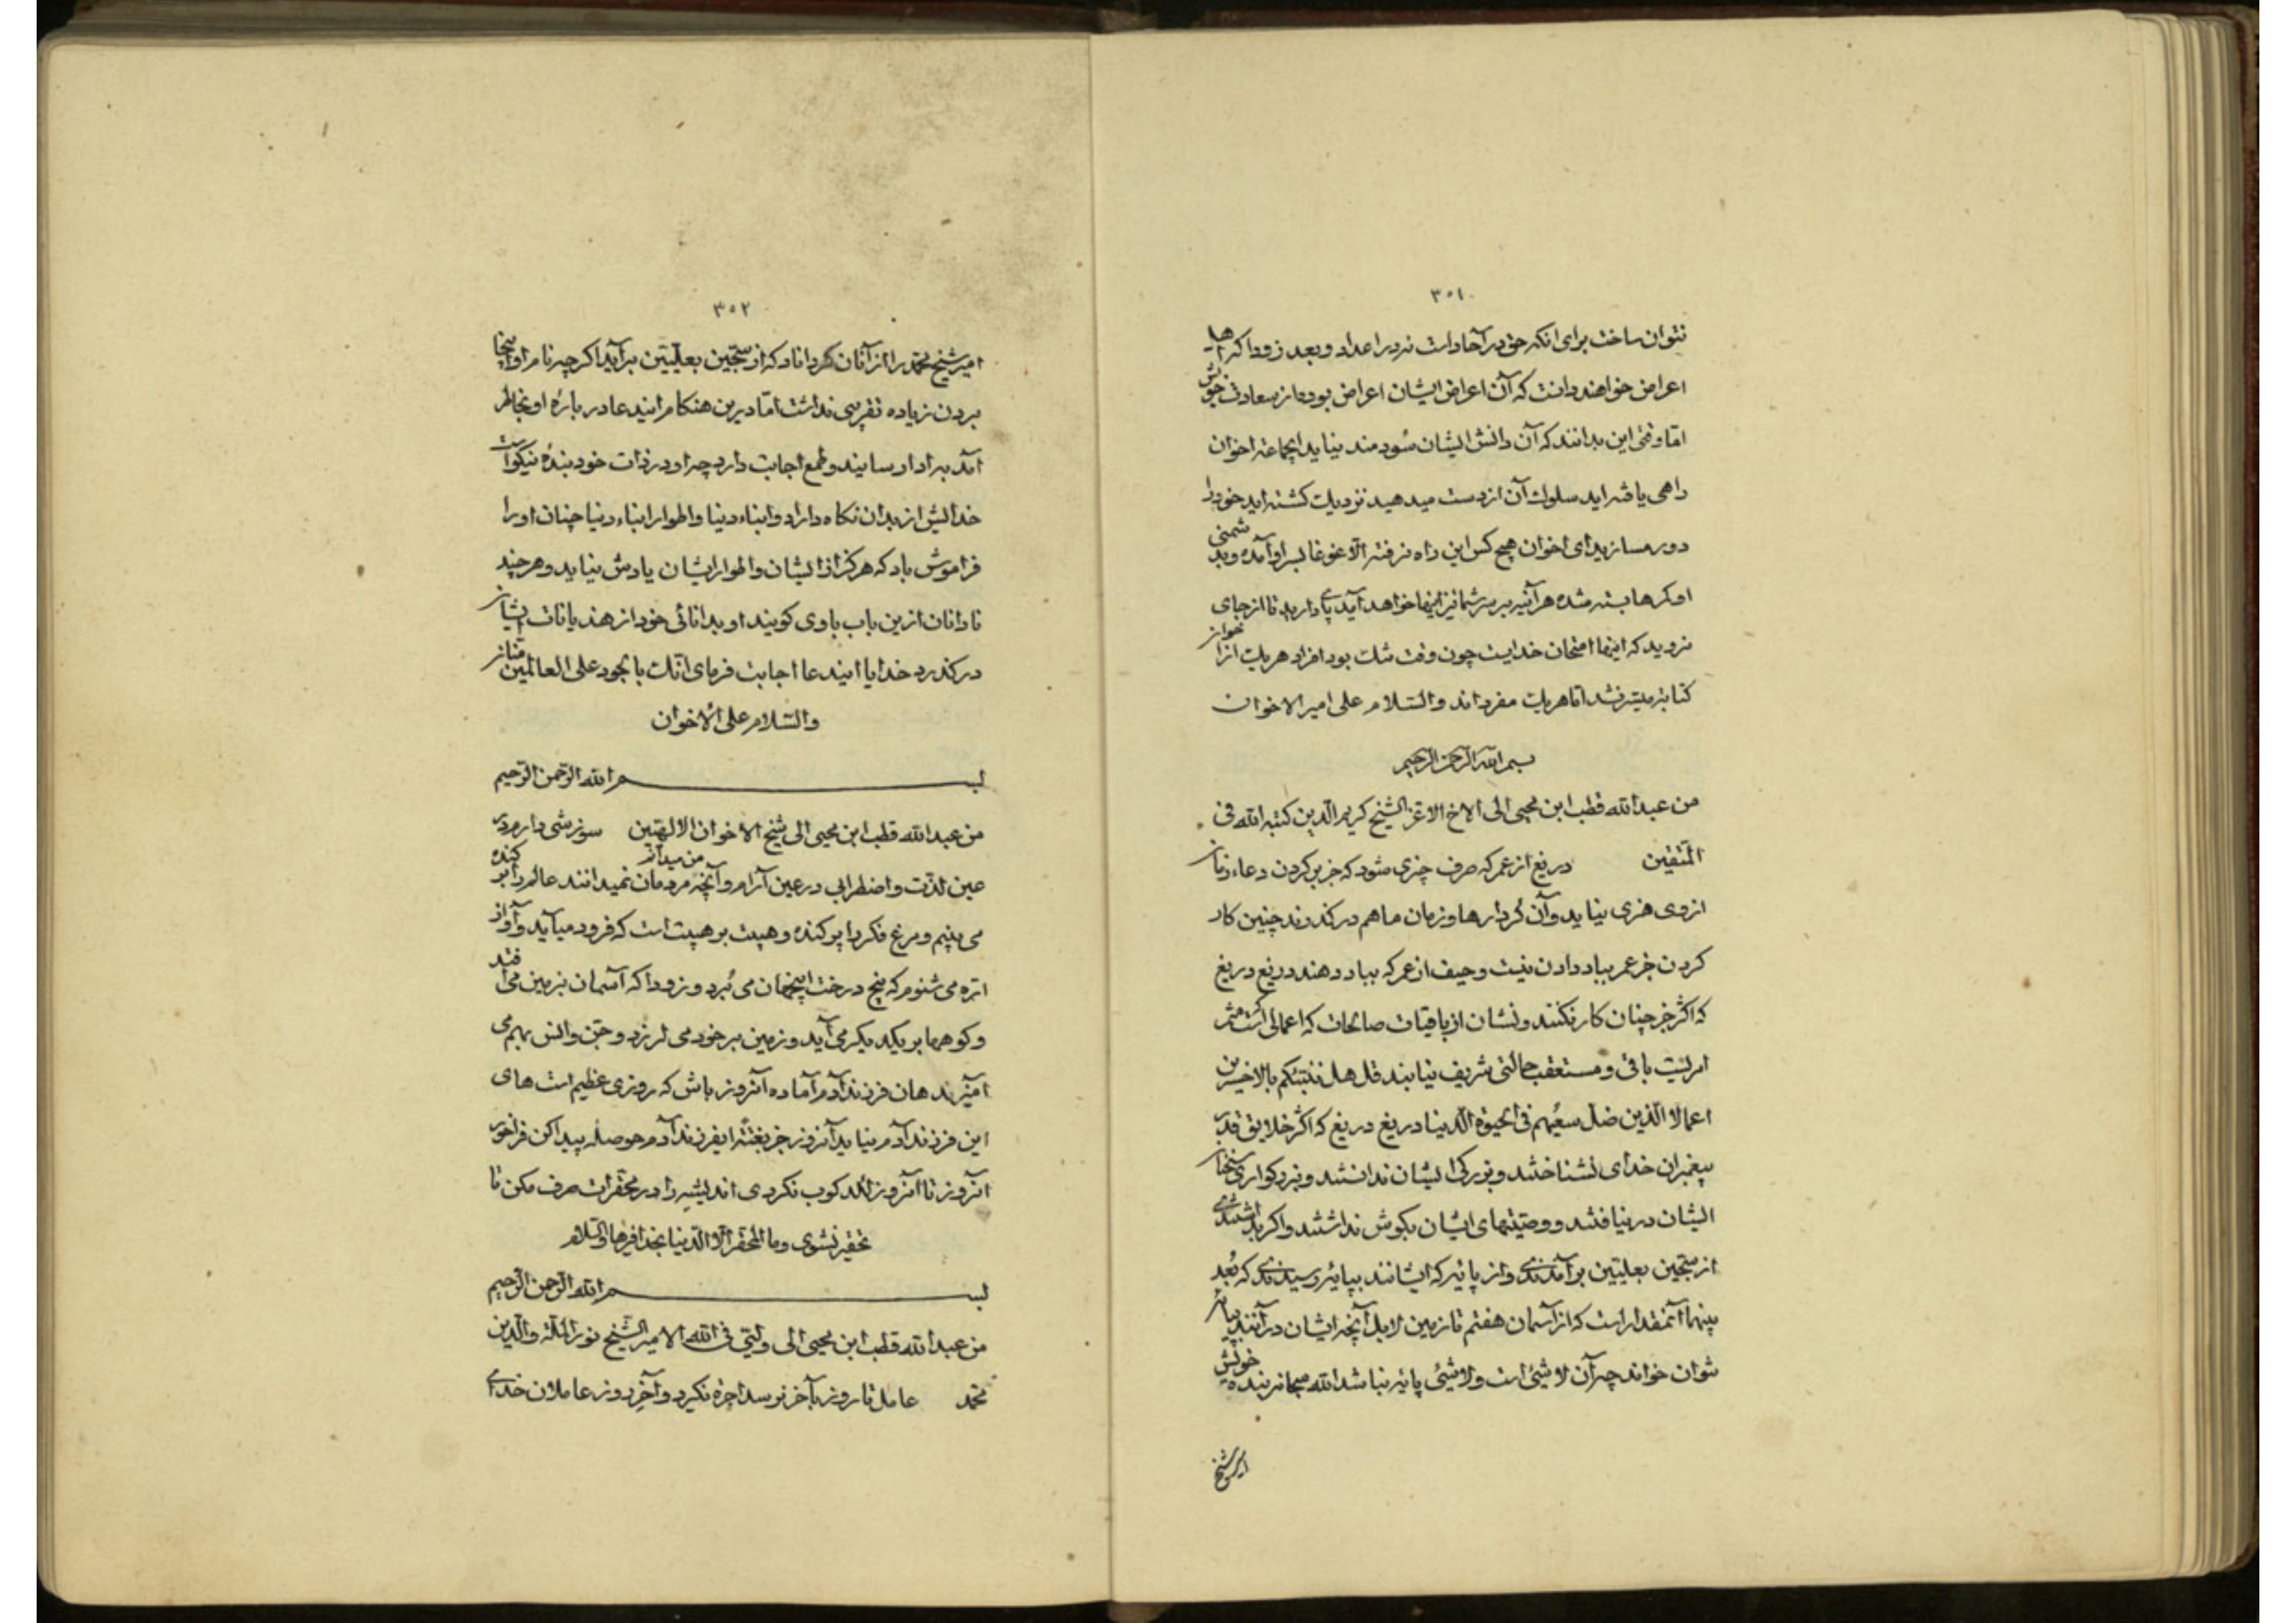 ۳۵۱
نتوان ساخت برای انکه حق در آحاد است نه در اعداد و بعد زود اکه اهل
اعراض خواهند دانست که آن اعراض ایشان اعراض بوده از سعادت خویش
امّا وقتی این بدانند که آن دانش ایشان سُودمند نیاید ایجماعة اخوان
راهی یافته اید سلوک آن از دست میدهید نزدیک کشته اید خود را
دور مسازید ای اخوان هیچ کس این راه نرفته الّا غوغا بسر او آمده و بدشمنی
او کمرها بسته شده هرآینه بر سر شما نیز اینها خواهد آمد پای دارید تا از جای
نروید که اینها امتحان خداست چون وقت تنک بود افراد هریک از اخوان
کتابة میسّر نشد امّا هریک مفرد اند والسّلام علی امیر الاخوان
بسم الله الرحمن الرحیم
من عبدالله قطب ابن محیی الی الاخ الاعز الشیخ کریم الدین کتبه الله فی
المتّقین دریغ از عمر که صرف چیزی شود که جز پر کردن دعاء زمان
ازوی هنری نیاید و آن کردارها و زمان ما هم در کذرند چنین کار
کردن جز عمر بباد دادن نیست و حیف از عمر که بباد دهند دریغ دریغ
که اکثر جز چنان کار نکنند و نشان از باقیات صالحات که اعمالی است مثمر
امریست باقی و مستعقب حالتی شریف نیابند قل هل ننبئکم بالاخسرین
اعمالا الّذین ضل سعیُهم فی الحیوة الدّنیا دریغ دریغ که اکثر خلایق قدر
پیغمبران خدای نشناختند و بزرکی ایشان ندانستند و بزرکواری سخنان
ایشان در نیافتند و وصیّتهای ایشان بکوش نداشتند و اکر بداشتندی
از سجّین بعلیّین برآمدندی و از پایه که ایشانند بپایه رسیدندی که بُعد
بینهما آنمقدار است که از آسمان هفتم تا زمین لا بل آنچه ایشان در آنند پایه
نتوان خواند چه آن لا شیٔ است و لا شیٔ پایه نباشد الله سبحانه بنده خویش
امیر شیخ
۳۵۲
امیر شیخ محمّد را از آنان کرداناد که از سجّین بعلیّین برآید اکرچه نام او اینجا
بردن زیاده تقریبی نداشت امّا درین هنکام ایندعا در باره او بخاطر
آمد به راد او رسانید و طمع اجابت دارد چه او در ذات خود بندهٔ نیکو است
خدایش از بدان نکاه دارد و ابناء دنیا و اطوار ابناء دنیا چنان او را
فراموش باد که هرکز از ایشان و اطوار ایشان یادش نیاید و هرچند
نادانان ازین باب با وی کویند او بدانائی خود از هذیانات ایشان
در کذرد خدایا ایندعا اجابت فرمای انّک بالجود علی العالمین منّان
والسّلام علی الاخوان
بسم الله الرّحمن الرّحیم
من عبدالله قطب ابن محیی الی شیخ الاخوان الالهیّین سوزشی دارم در
عین لذّت و اضطرابی در عین آرام و آنچه مردمان نمیدانند من میدانم عالم را پر کنده
می بینم و مرغ فکر را پر کنده و هیبت بر هیبت است که فرود میآید و آواز
ارّه می شنوم که بیخ درخت اینجهان می بُرد و زودا که آسمان بزمین می افتد
و کوهها بریکدیکر می آید و زمین بر خود می لرزد و جنّ و انس بهم می
آمیزند هان فرزند آدم آماده آنروز باش که روزی عظیم است های
این فرزند آدم نیاید آنروز جز بغتةً ایفرزند آدم حوصله پیدا کن فراخور
آنروز تا آنروز لکد کوب نکردی اندیشه را در محقّرات صرف مکن تا
تحقیر نشوی و ما المحقّر الّا الدّنیا بحذافیرها والسّلام
بسم الله الرّحمن الرّحیم
من عبدالله قطب ابن محیی الی ولیّی فی الله الامیر الشّیخ نور الملّة والدّین
محمّد عامل تا روز بآخر نرسد اجره نکیرد و آخر روز عاملان خدای